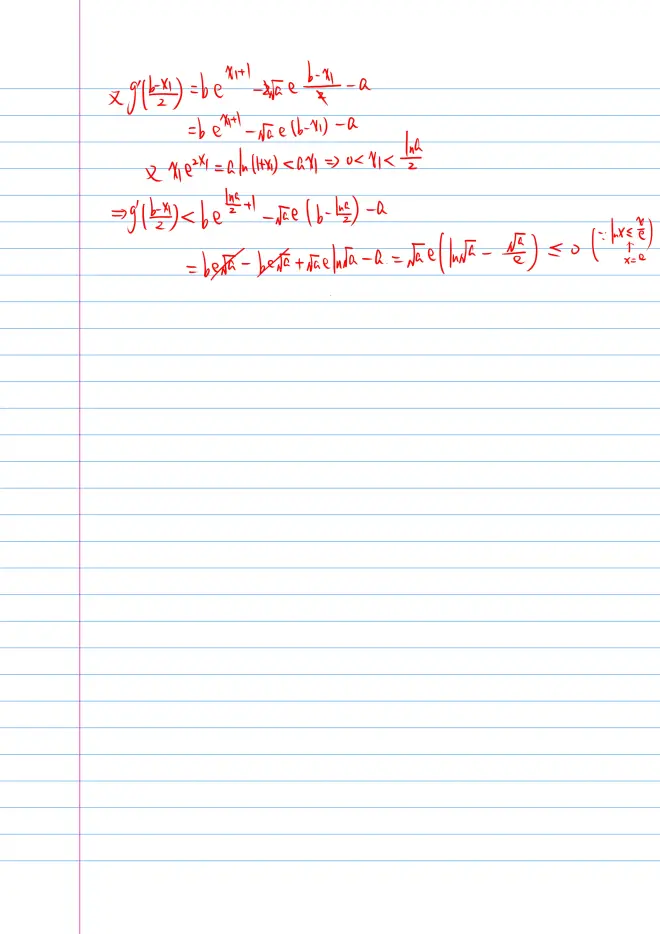 又 g'(\frac{b-x_1}{2}) = be^{x_1+1} - 2\sqrt{a}e\frac{b-x_1}{2} - a
= be^{x_1+1} - \sqrt{a}e(b-x_1) - a
又 x_1e^{2x_1} = a\ln(1+x_1) < ax_1 ⇒ 0 < x_1 < \frac{\ln a}{2}
⇒ g'(\frac{b-x_1}{2}) < be^{\frac{\ln a}{2}+1} - \sqrt{a}e(b-\frac{\ln a}{2}) - a
= be\sqrt{a} - be\sqrt{a} + \sqrt{a}e\ln\sqrt{a} - a = \sqrt{a}e(\ln\sqrt{a} - \frac{\sqrt{a}}{e}) ≤ 0 (∵ \ln x ≤ \frac{x}{e}
↑
x=e)